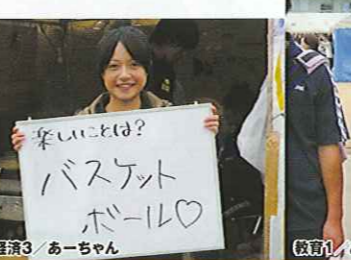 楽しいことは?
バスケット
ボール♡
経済3/あーちゃん
教育1/